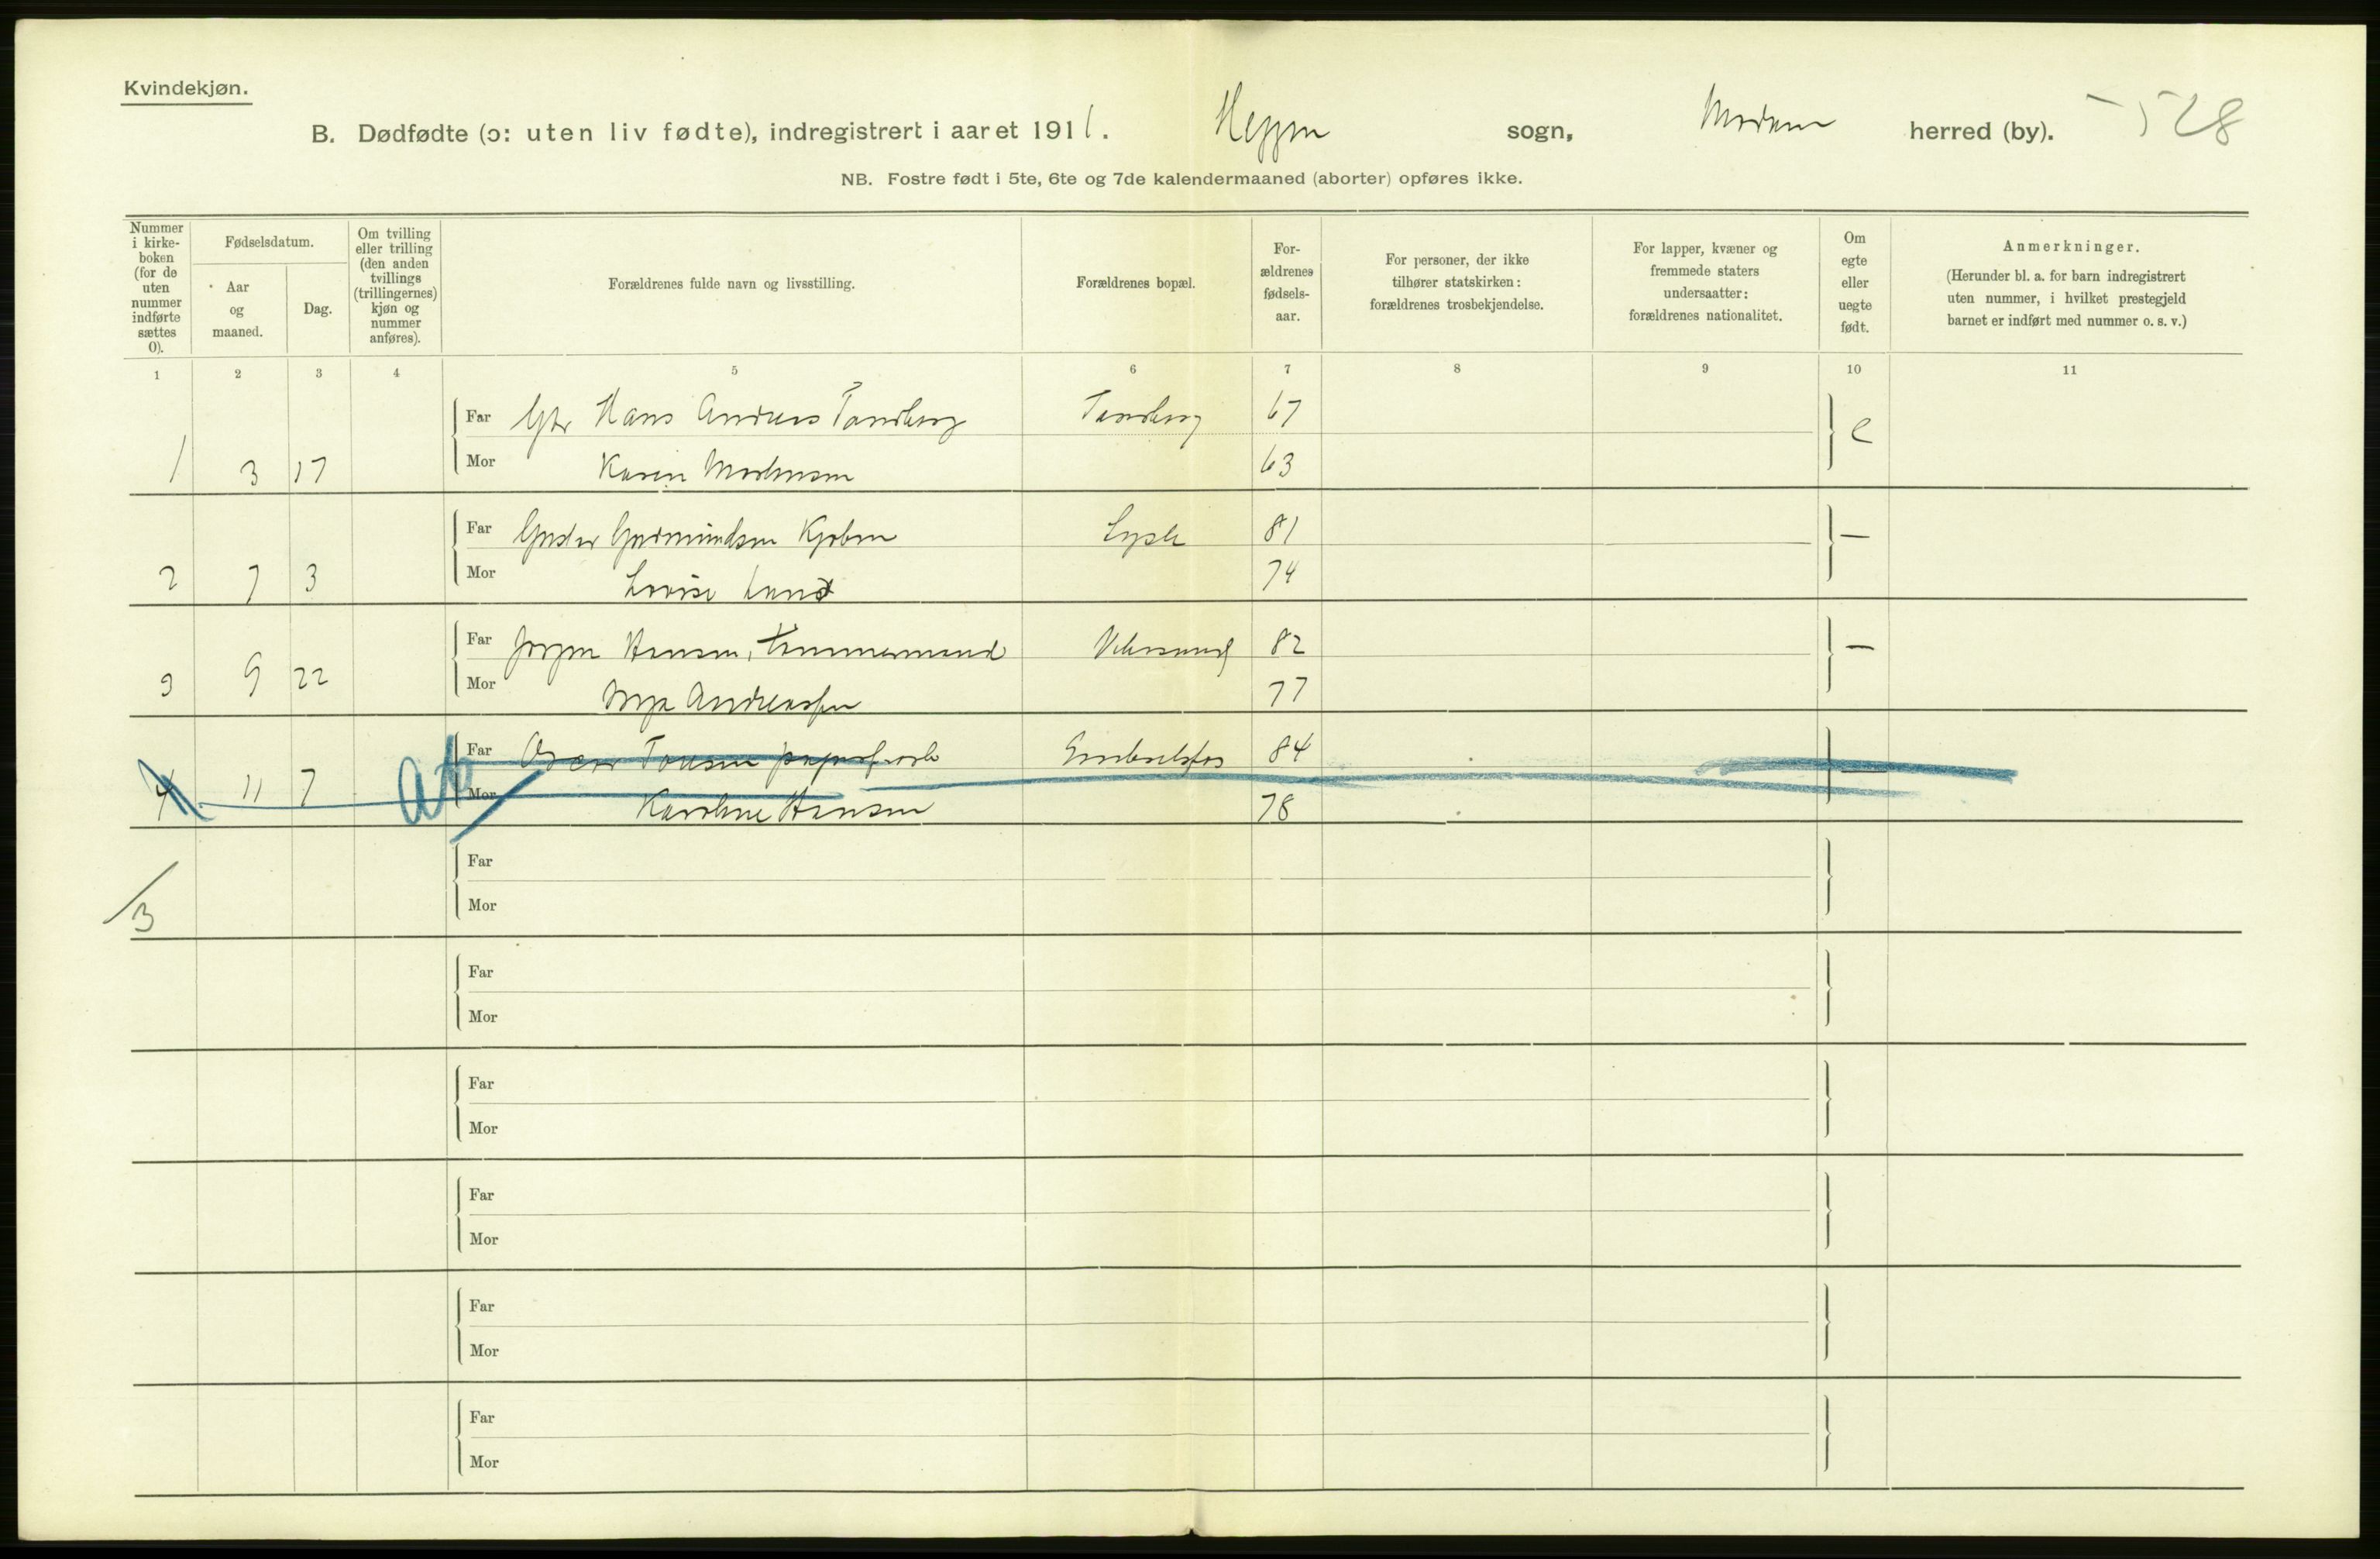 Kvindekjøn.
B. Dødfødte (ɔ: uten liv fødte), indregistrert i aaret 1911. Heggen sogn, Modum herred (by). 528
NB. Fostre født i 5te, 6te og 7de kalendermaaned (aborter) opføres ikke.
Nummer
i kirke-
boken
(for de
uten
nummer
indførte
sættes
0).
Fødselsdatum.
Aar
og
maaned.
Dag.
Om tvilling
eller trilling
(den anden
tvillings
(trillingernes)
kjøn og
nummer
anføres).
Forældrenes fulde navn og livsstilling.
Forældrenes bopæl.
For-
ældrenes
fødsels-
aar.
For personer, der ikke
tilhører statskirken:
forældrenes trosbekjendelse.
For lapper, kvæner og
fremmede staters
undersaatter:
forældrenes nationalitet.
Om
egte
eller
uegte
født.
Anmerkninger.
(Herunder bl. a. for barn indregistrert
uten nummer, i hvilket prestegjeld
barnet er indført med nummer o. s. v.)
1 2 3 4 5 6 7 8 9 10 11
Far Gbr Hans Anders Tandberg Tandberg 67 e
1 3 17 Mor Karen Mortensen 63
Far Gudmundsen 81 —
2 7 3 Mor Lovise Lund 74
Far Jørgen Hansen, tømmermand Vikersund 82 —
3 9 22 Mor Andreassen 77
Far Oscar Embretsfos 84 —
4 11 7 Mor Karoline Hansen 78
Far
3 Mor
Far
Mor
Far
Mor
Far
Mor
Far
Mor
Far
Mor